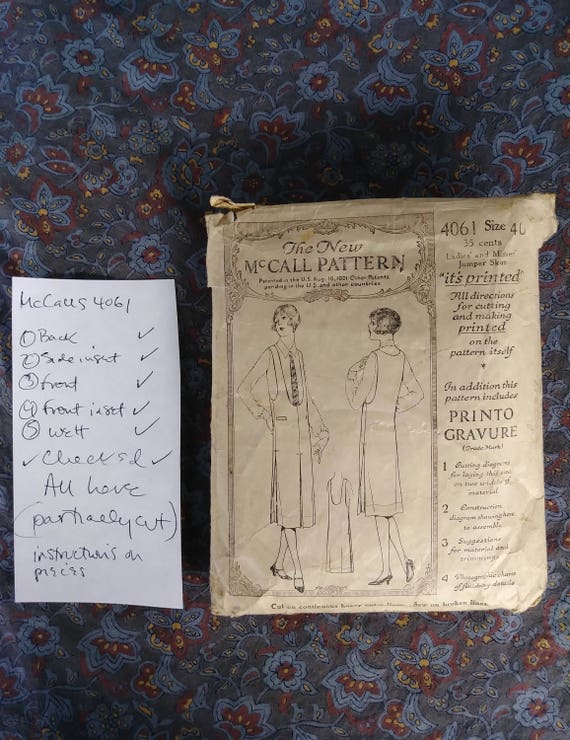 McCalls 4061
① Back ✓
② Side inset ✓
③ front ✓
④ front inset ✓
⑤ welt ✓
✓ Checked ✓
All here
(partially cut)
instructions on
pieces
The New
McCALL PATTERN
Patented in the U.S. Aug. 16, 1921 Other Patents
pending in the U.S. and other countries
4061 Size 40
35 cents
Ladies' and Misses'
Jumper Skirt
"it's printed"
All directions
for cutting
and making
printed
on the
pattern itself
*
In addition this
pattern includes
PRINTO
GRAVURE
(Trade Mark)
1 Cutting diagrams
for laying this size
on two widths of
material
2 Construction
diagram showing how
to assemble
3 Suggestions
for material and
trimmings
4 Photographic charts
of finishing details
Cut on continuous heavy lines. Sew on broken lines.